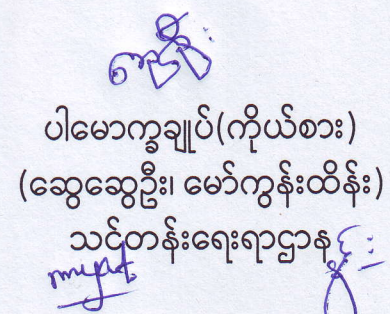 ပါမောက္ခချုပ်(ကိုယ်စား)
(ဆွေဆွေဦး၊ မော်ကွန်းထိန်း)
သင်တန်းရေးရာဌာန